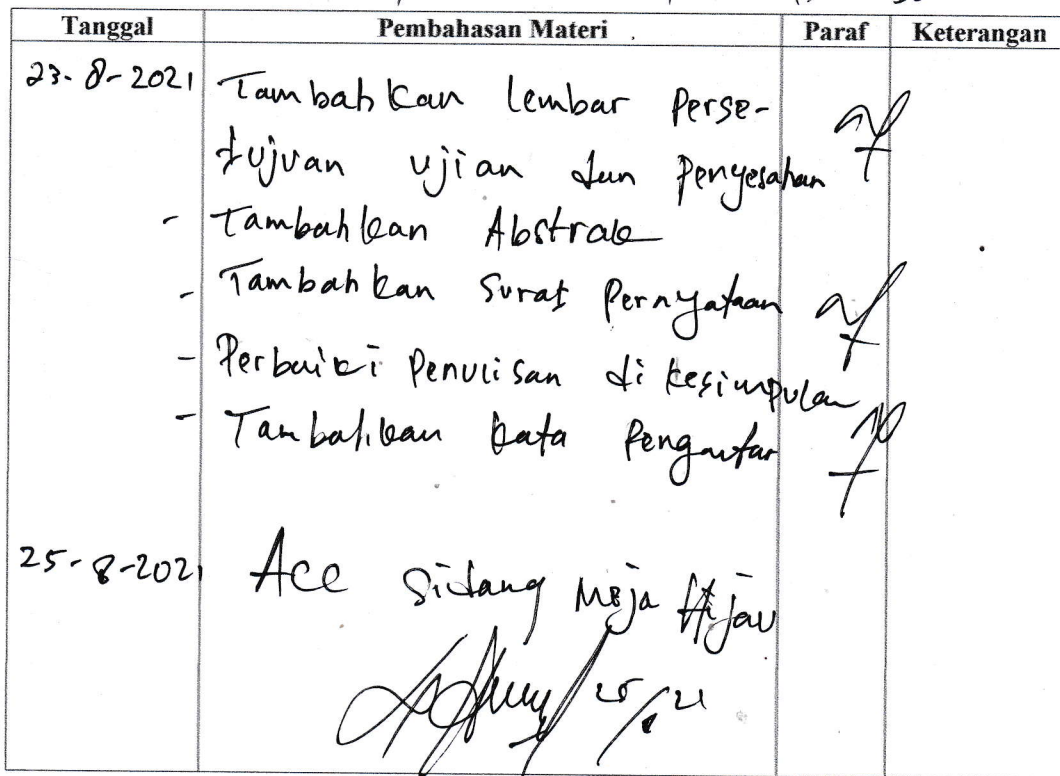 Tanggal Pembahasan Materi Paraf Keterangan
23-8-2021 Tambahkan lembar Perse-
tujuan ujian dan Pengesahan
- Tambahkan Abstrak
- Tambahkan Surat Pernyataan
- Perbaiki Penulisan di kesimpulan
- Tambahkan kata Pengantar
25-8-2021 Acc Sidang Meja Hijau